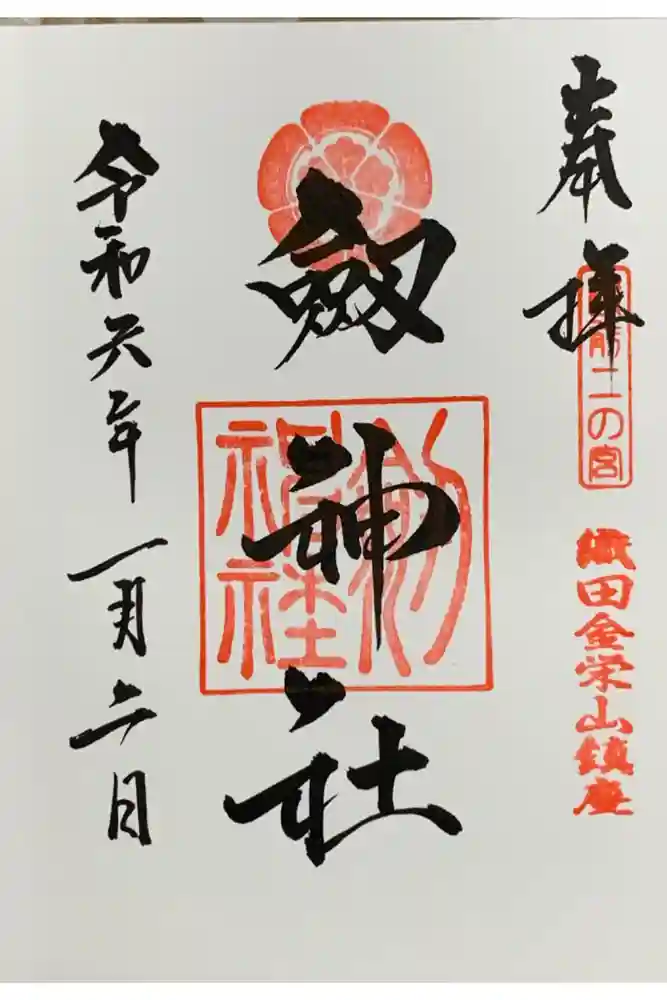 奉拝
越前二の宮
織田金栄山鎮座
劔神社
劔神社
令和六年一月二日